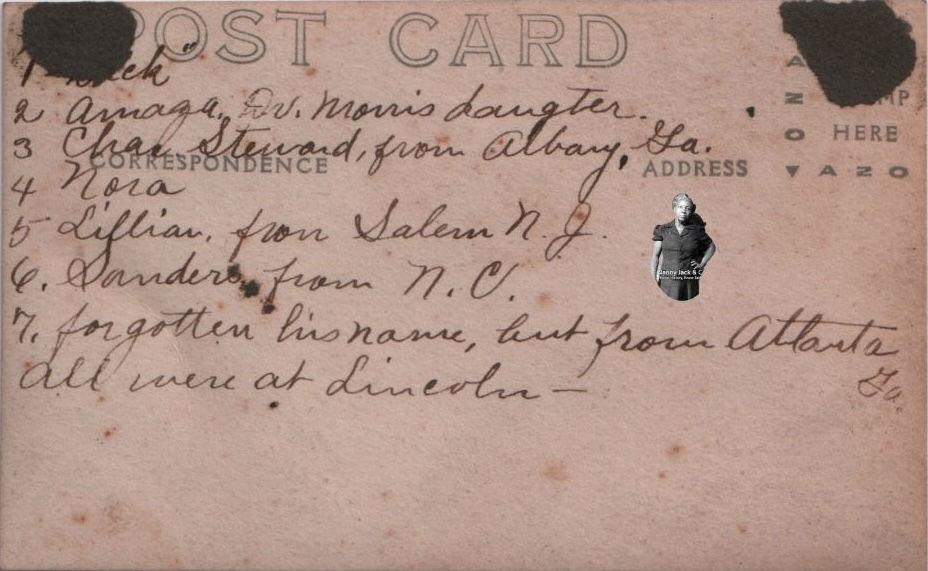 POST CARD
1
2 Amaga, Dr. Morris daugter.
3 Chas Steward, from Albany, Ga.
CORRESPONDENCE
ADDRESS
HERE
AZO
4 Nora
5 Lillian, from Salem N. J.
6. Sanders, from N. C.
7. forgotten his name, but from Atlanta
Ga.
all were at Lincoln —
Nanny Jack & C